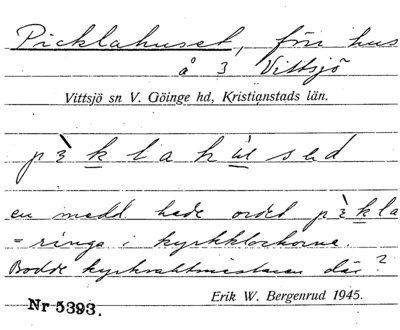 Picklahuset, förr hus
å 3 Vittsjö
Vittsjö sn V. Göinge hd, Kristianstads län.
pɛ̀klahùsəd
en medd. hade ordet pɛ̀kla
= ringa i kyrkklockorna.
Bodde kyrkvaktmästaren där?
Nr 5393.
Erik W. Bergenrud 1945.